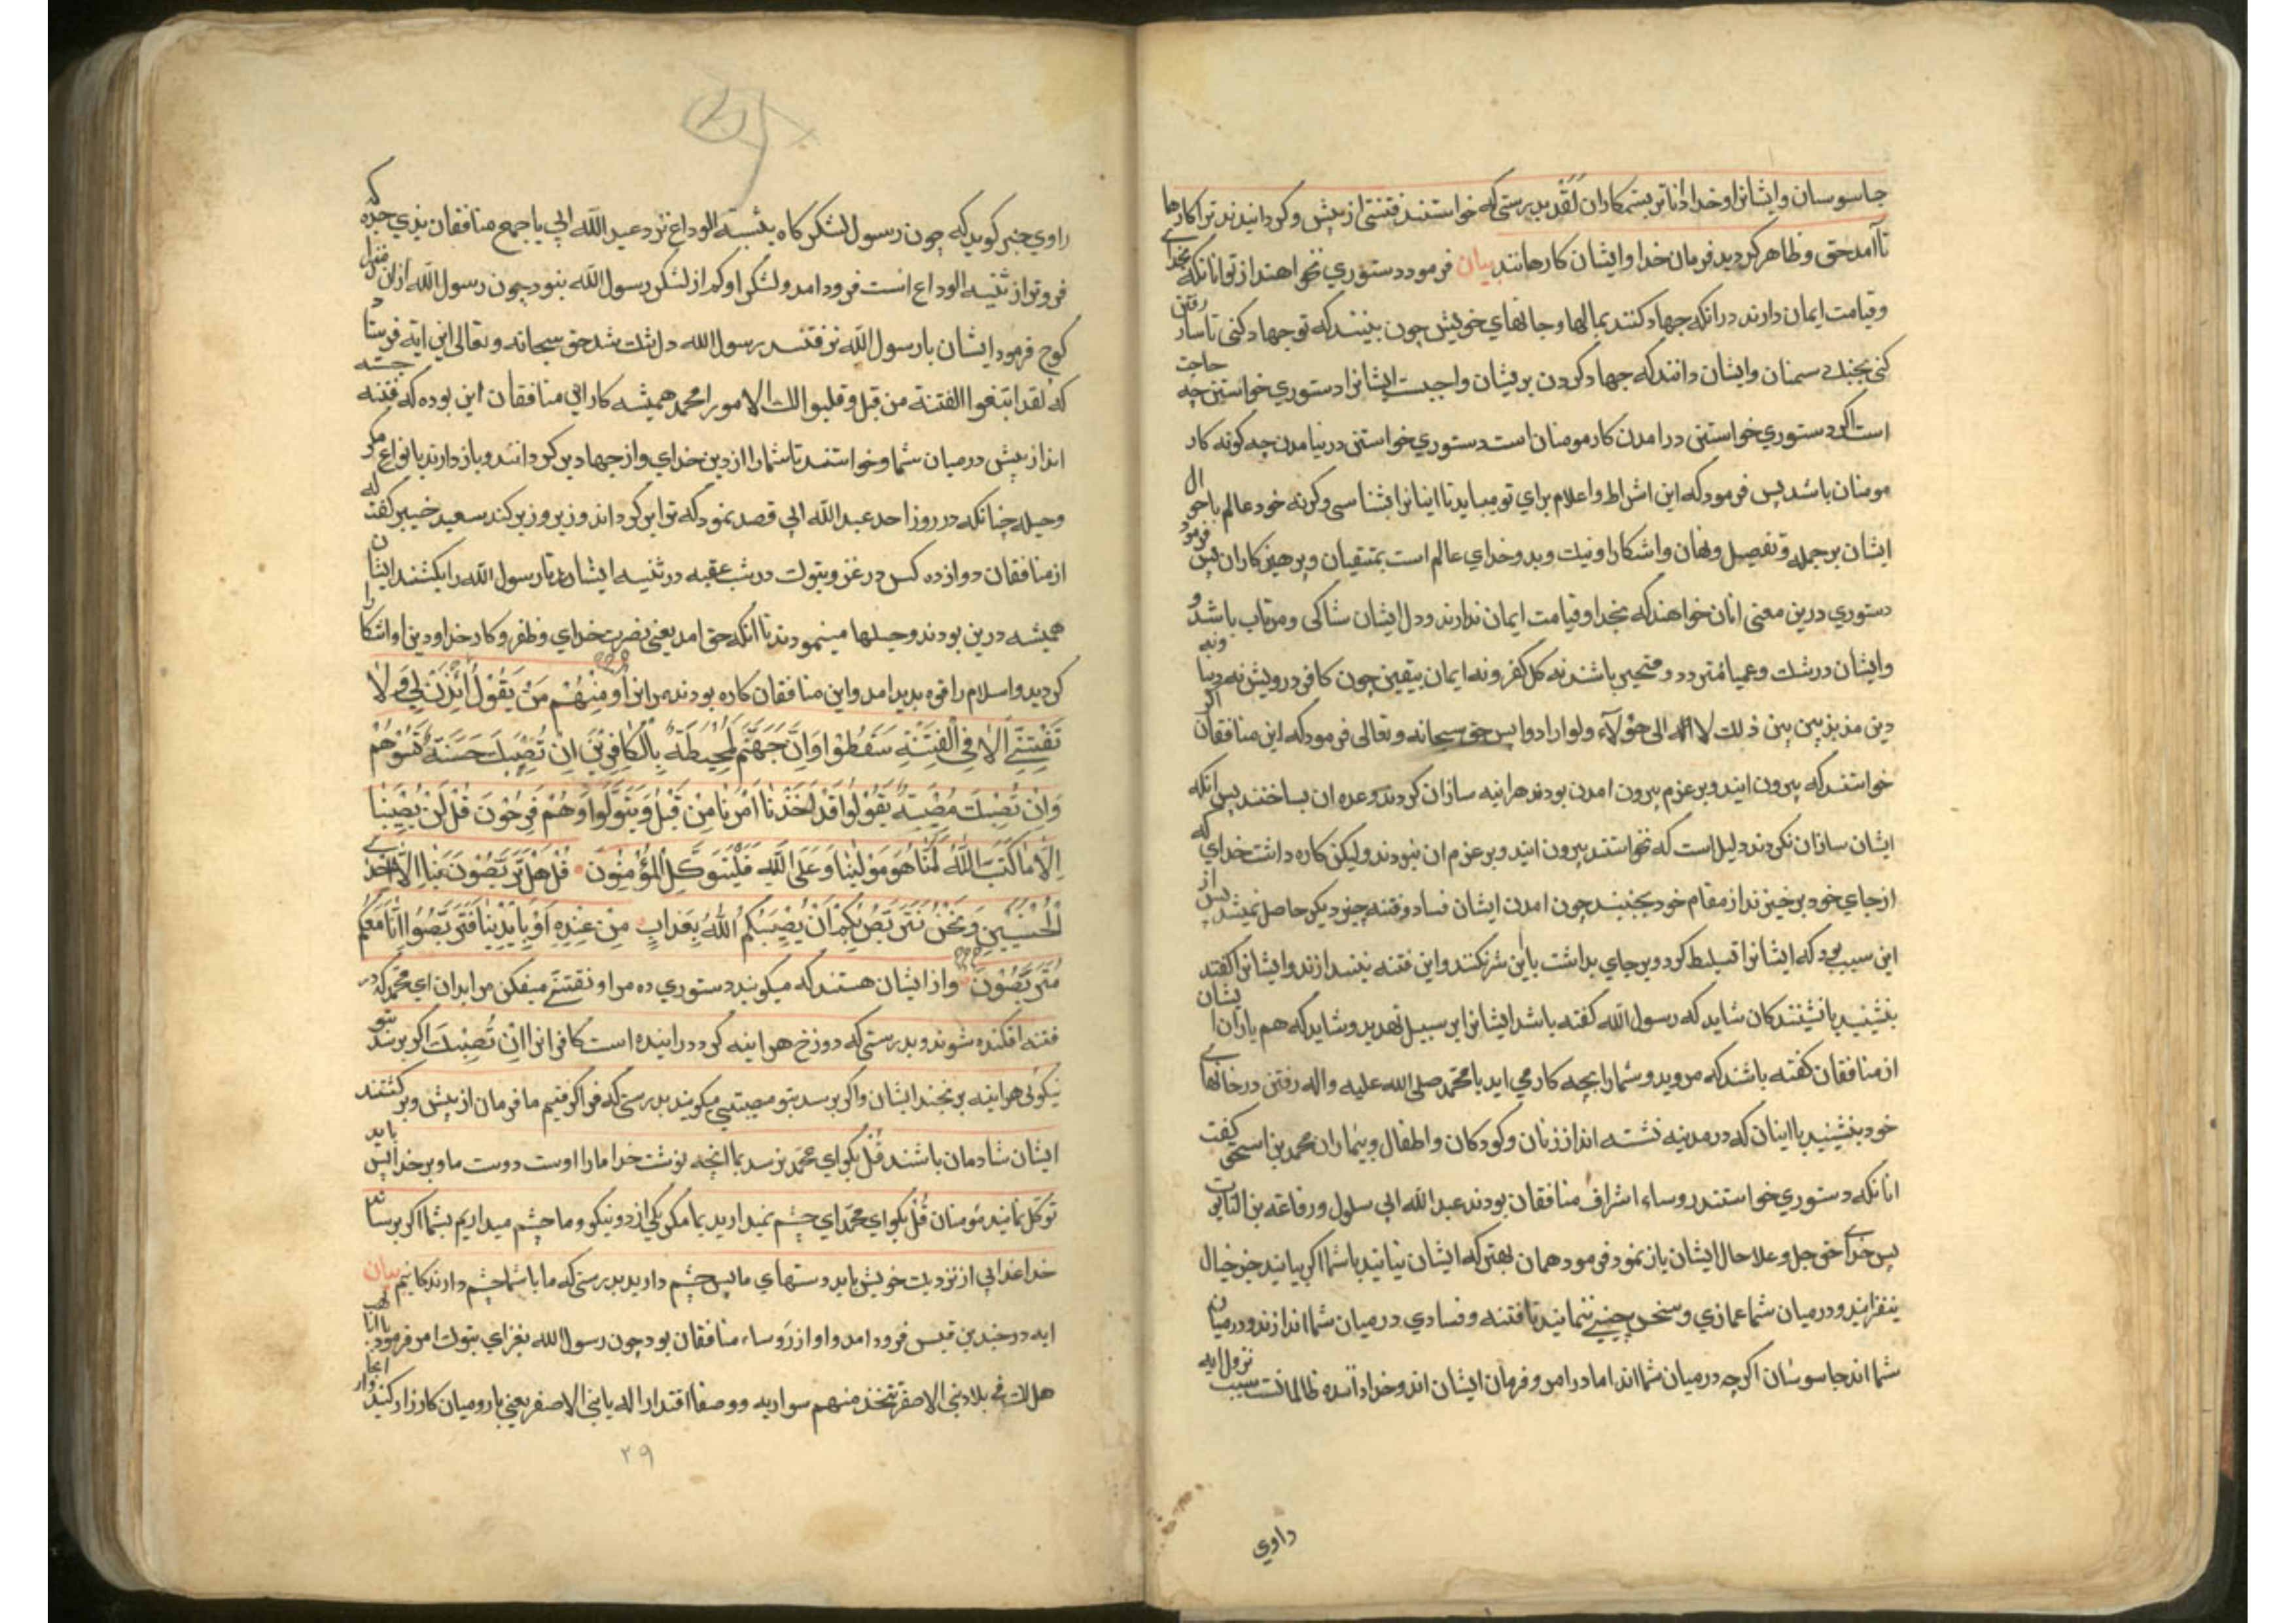 جاسوسان وایشانرا وخدا داناتر بستمکاران لَقَد بدرستی که خواستند فتنتی از پیش وکردانیدند ترا کارها
تا آمد حق وظاهر کردید فرمان خدا وایشان کارهانند بیان فرمود دستوري نخواهند از تو انانکه بخدای
وقیامت ایمان دارند در انکه جهاد کنند بمالها وجانهاي خویش چون بینند که تو جهاد کنی تا ساز رفتن
کنی بجنك دسمنان وایشان دانند که جهاد کردن بریشان واجبست ایشانرا دستوري خواستن چه حاجت
است اکر دستوري خواستنی در امدن کار مومنان است دستوري خواستنی در نیامدن چه کونه کار
مومنان باشد پس فرمود که این اشراط واعلام براي تو میباید تا اینانرا بشناسی وکرنه خود عالم باحوال
ایشان بر جمله وتفصیل ونهان واشکارا ونیك وبد وخداي عالم است بمتقیان وپرهیزکاران پس فرمود
دستوري درین معنی انان خواهند که بخدا وقیامت ایمان ندارند ودل ایشان شاکی ومرتاب باشد و
وایشان در شك وعمیا متردد ومتحیر باشند نه کل کفر ونه ایمان بیقین چون کافر درویش نه دنیا ونه
دین مذبذبین بین ذلك لا اله الی هؤلآء ولو ارادوا پس حق سبحانه وتعالی فرمود که این منافقان اکر
خواستند که بیرون ایند وبر عزم بیرون امدن بودند هراینه سازان کردند وعده ان بساختند پس انکه
ایشان سازان نکردند دلیل است که نخواستند بیرون ایند وبر عزم ان نبودند ولیکن کاره داشت خداي که
از جاي خود برخیزند از مقام خود بجنبند چون امدن ایشان فساد وفتنه چیز دیکر حاصل نمیشد پس از
این سبب بود که ایشانرا تثبیط کرد وبر جاي بداشت تا این شر نکنند واین فتنه نیندازند وایشانرا کفتند
بنشینید با نشینندکان شاید که رسول الله کفته باشد ایشانرا بر سبیل تهدید وشاید که هم یاران ایشان
از منافقان کفته باشند که مروید وشمارا بچه کار می اید با محمد صلی الله علیه واله رفتن در خانهای
خود بنشینید با اینان که در مدینه نشسته اند از زنان وکودکان واطفال وبیماران محمد بن اسحق کفت
انانکه دستوري خواستند روساء اشراف منافقان بودند عبد الله ابی سلول ورفاعه بن التابوت
پس خدای حق جل وعلا حال ایشان باز نمود فرمود همان بهتر که ایشان نیایند با شما اکر بیایند جز خبال
نیفزایند ودر میان شما غمازي وسخن چینی ننمایند تا فتنه وفسادي در میان شما اندازند ودر میان
شما اند جاسوسان اکر چه در میان شما اند اما در امر وفرمان ایشان اند وخدا داننده ظالمانست سبب نزول ایه
راوي
راوي خبر کوید که چون رسول لشکرکاه بثنیة الوداع نزد عبد الله ابی با جمع منافقان بذي جده که
فروتر از ثنیه الوداع است فرود امد ولشکر او کم از لشکر رسول الله نبود چون رسول الله از ان منزل
کوچ فرمود ایشان با رسول الله نرفتند رسول الله دلتنك شد حق سبحانه وتعالی این ایه فرستاد
که لقد ابتغوا الفتنة من قبل وقلبوا لك الامور ا محمد همیشه کار این منافقان این بوده که فتنه جسته
اند از پیش در میان شما وخواستند تا شمارا از دین خداي واز جهاد دین کردانند وباز دارند بانواع مکر
وحیله چنانکه در روز احد عبد الله ابی قصد نمود که تو ابرکرداند وزیر وزبر کند سعید خبیر کفت که
از منافقان دوازده کس در غزو تبوك در شب عقبه در ثنیه ایستادند تا رسول الله را بکشند ایشان
همیشه درین بودند وحیلها مینمودند تا انکه حق امد یعنی نصرت خداي وظفر وکار خدا ودین او اشکارا
کردید واسلام را قوه پدید امد واین منافقان کاره بودند مر انرا وَمِنْهُمْ مَنْ یَقُوْلُ ائْذَنْ لِي وَلَا
تَفْتِنِّي اَلَا فِي الْفِتْنَةِ سَقَطُوْا وَاِنَّ جَهَنَّمَ لَمُحِیْطَةٌ بِالْکَافِرِیْنَ اِنْ تُصِبْكَ حَسَنَةٌ تَسُؤْهُمْ
وَاِنْ تُصِبْكَ مُصِیْبَةٌ یَقُوْلُوا قَدْ اَخَذْنَا اَمْرَنَا مِنْ قَبْلُ وَیَتَوَلَّوْا وَهُمْ فَرِحُوْنَ قُلْ لَنْ یُصِیْبَنَا
اِلَّا مَا کَتَبَ اللّٰهُ لَنَا هُوَ مَوْلٰینَا وَعَلَی اللّٰهِ فَلْیَتَوَکَّلِ الْمُؤْمِنُوْنَ قُلْ هَلْ تَرَبَّصُوْنَ بِنَا اِلَّا اِحْدَی
الْحُسْنَیَیْنِ وَنَحْنُ نَتَرَبَّصُ بِکُمْ اَنْ یُصِیْبَکُمُ اللّٰهُ بِعَذَابٍ مِنْ عِنْدِهِ اَوْ بِاَیْدِیْنَا فَتَرَبَّصُوْا اِنَّا مَعَکُمْ
مُتَرَبِّصُوْنَ واز ایشان هستند که میکویند دستوري ده مرا وَ تفتنّی میفکن مرا بدان اي محمد که در
فتنه افکنده شوند وبدرستی که دوزخ هراینه کرد دراینده است کافرانرا اِنْ تُصِبْكَ اکر برسد بتو
نیکوئی هراینه برنجند ایشان واکر برسد بتو مصیبتی میکویند بدرستی که فرا کرفتیم ما فرمان از پیش وبرکشتند
ایشان شادمان باشند قُلْ بکو اي محمد نرسد بما انچه نوشت خدا مارا اوست دوست ما وبر خدا پس باید
توکل نمایند مومنان قُلْ بکو اي محمد اي چشم نمیدارید بما مکر یکی از دو نیکو وما چشم میداریم بشما اکر برساند
خدا عذابی از نزدیك خویش یا بدوستهاي ما پس چشم دارید بدرستی که ما با شما چشم دارندکانیم بیان
ایه در جند بن قیس فرود امد واو از رَوساء منافقان بود چون رسول الله بغزاي تبوك امر فرمود
هل لك في بلاد بني الاصفر تتخذ منهم سواریه ووصفا اقتدار اله یا بني الاصفر یعني با رومیان کارزار کنید
۲۹